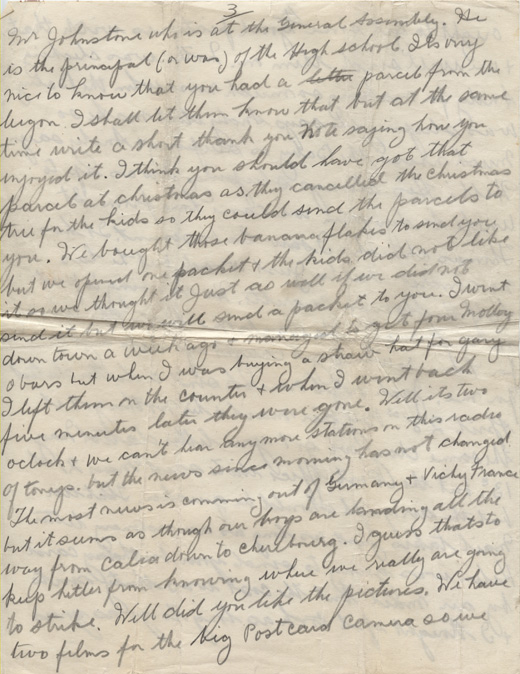 3
Mr Johnstone who is at the General Assembly. He
is the principal (or was) of the High school. Its very
nice to know that you had a letter parcel from the
legon. I shall let them know that but at the same
time write a short thank you Note saying how you
injoyed it. I think you should have got that
parcel at christmas as they cancelled the christmas
tree for the kids so they could send the parcels to
you. We bought those banana flakes to send you
but we opened one packet + the kids did not like
it so we thought it Just as well if we did not
send it but we will send a packet to you. I went
down town a week ago + managed to get four Molloy
o bars but when I was buying a straw hat for gary
I left them on the counter + when I went back
five minutes later they were gone. Well its two
oclock + we can't hear any more stations on this radio
of tonys. but the news since morning has not changed
The most news is comming out of Germany + Vichy France
but it seems as though our boys are landing all the
way from Calia down to cherbourg. I guess thats to
keep hitler from knowing where we really are going
to strike. Well did you like the pictures. We have
two films for the big Postcard camera so we